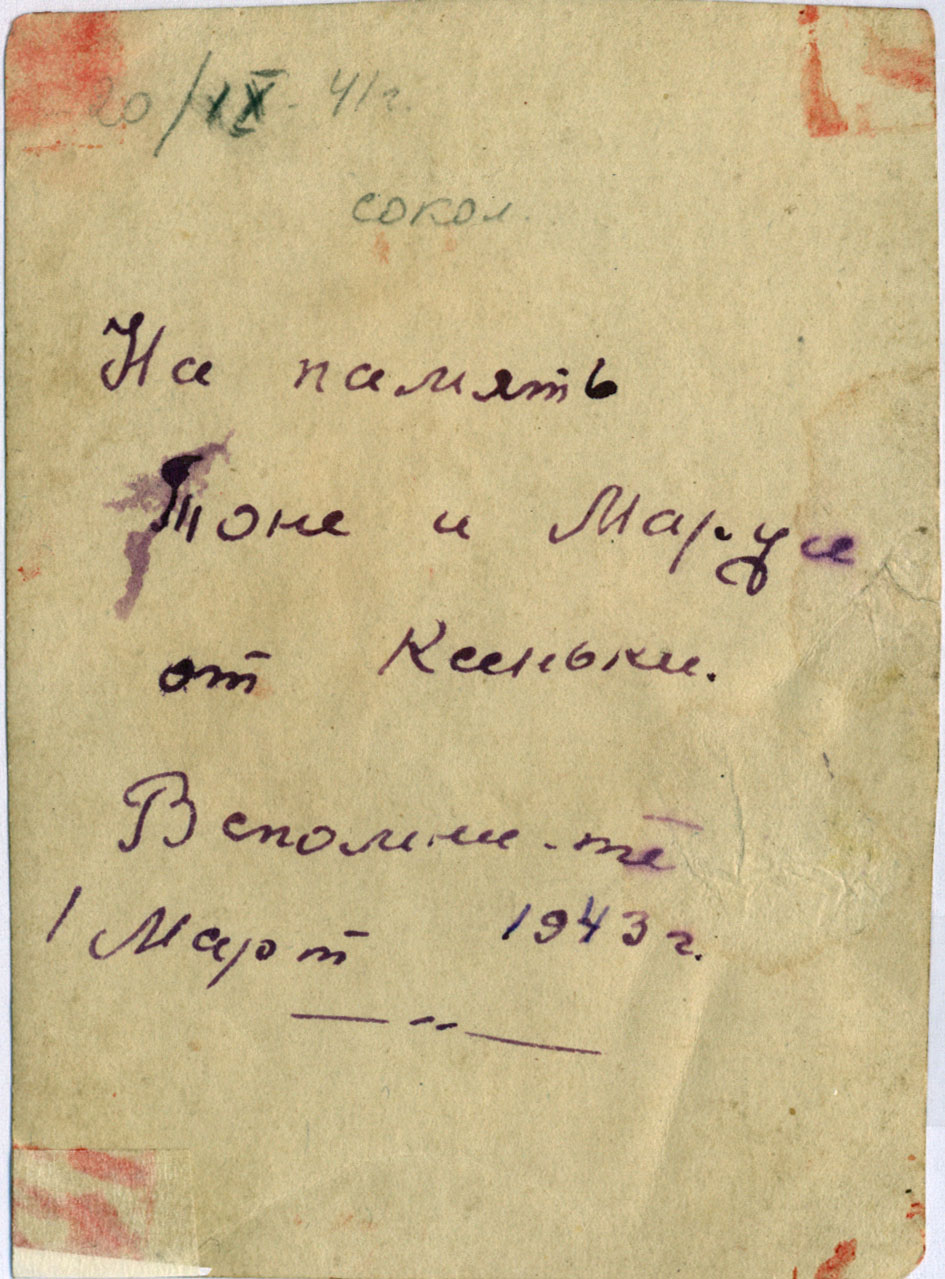 20/IX-41г.
сокол
На память
Тоне и Марусе
от Ксеньки.
Вспомни-те
1 Март 1943г.